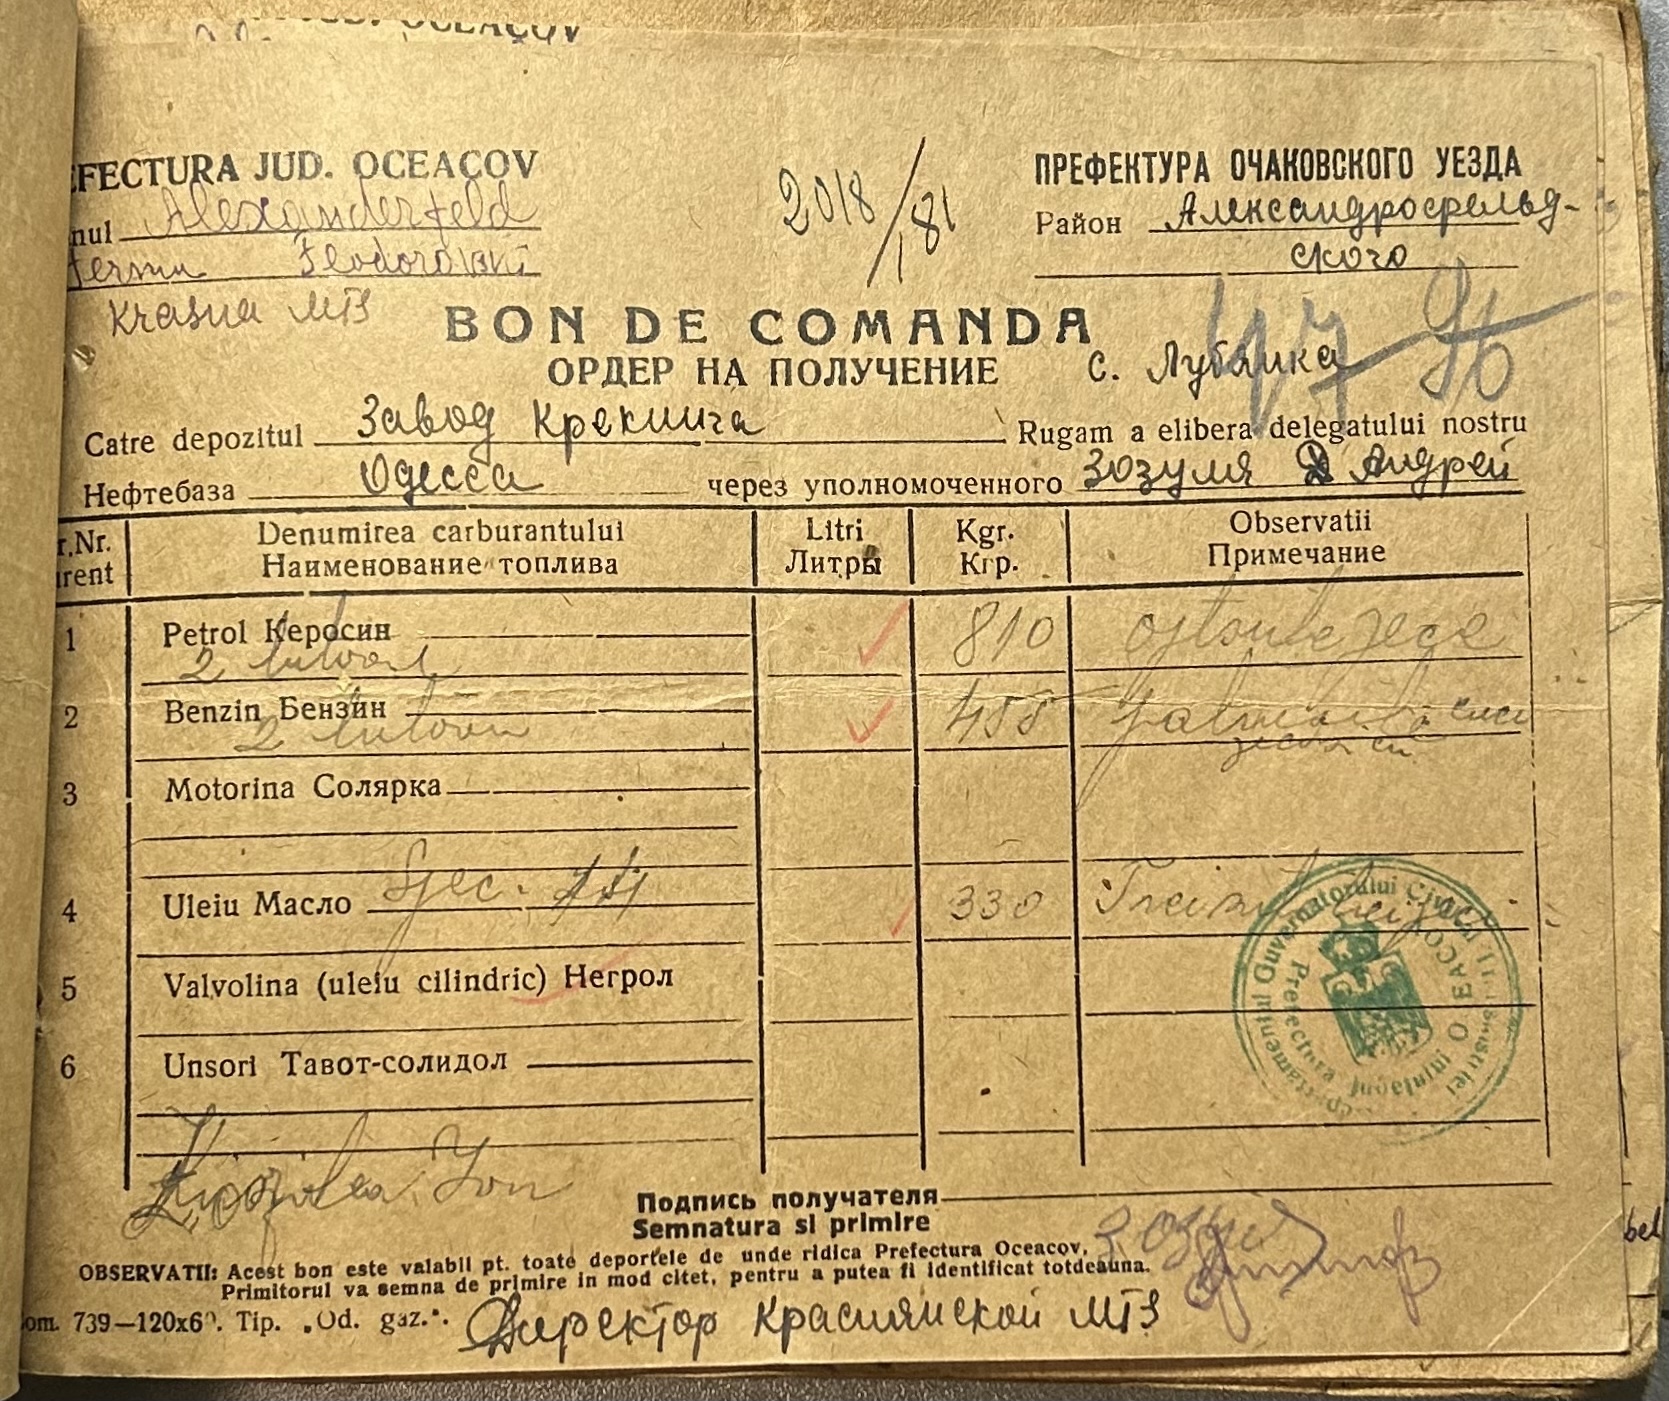 JUD. OCEACOV
EFECTURA JUD. OCEACOV
2018/181
ПРЕФЕКТУРА ОЧАКОВСКОГО УЕЗДА
nul Alexanderfeld
Район Александрофельд-
ского
Krasna МТЗ
BON DE COMANDA
47 96
ОРДЕР НА ПОЛУЧЕНИЕ
с. Лубянка
Catre depozitul Завод Крекинга
Rugam a elibera delegatului nostru
Нефтебаза Одесса
через уполномоченного Зозуля Андрей
r.Nr.
rent
Denumirea carburantului
Наименование топлива
Litri
Литры
Kgr.
Кгр.
Observatii
Примечание
1 Petrol Керосин 810 optsutezece
2
2 Benzin Бензин
2
3 Motorina Солярка
4 Uleiu Масло 330
5 Valvolina (uleiu cilindric) Негрол
6 Unsori Тавот-солидол
Guvernatorului Civil
Prefectura
OCEACOV
Ion
Подпись получателя
Semnatura si primire
OBSERVATII: Acest bon este valabil pt. toate deportele de unde ridica Prefectura Oceacov.
Primitorul va semna de primire in mod citet, pentru a putea fi identificat totdeauna.
om. 739—120x6. Tip. „Od. gaz.".
Директор Краснянской МТЗ